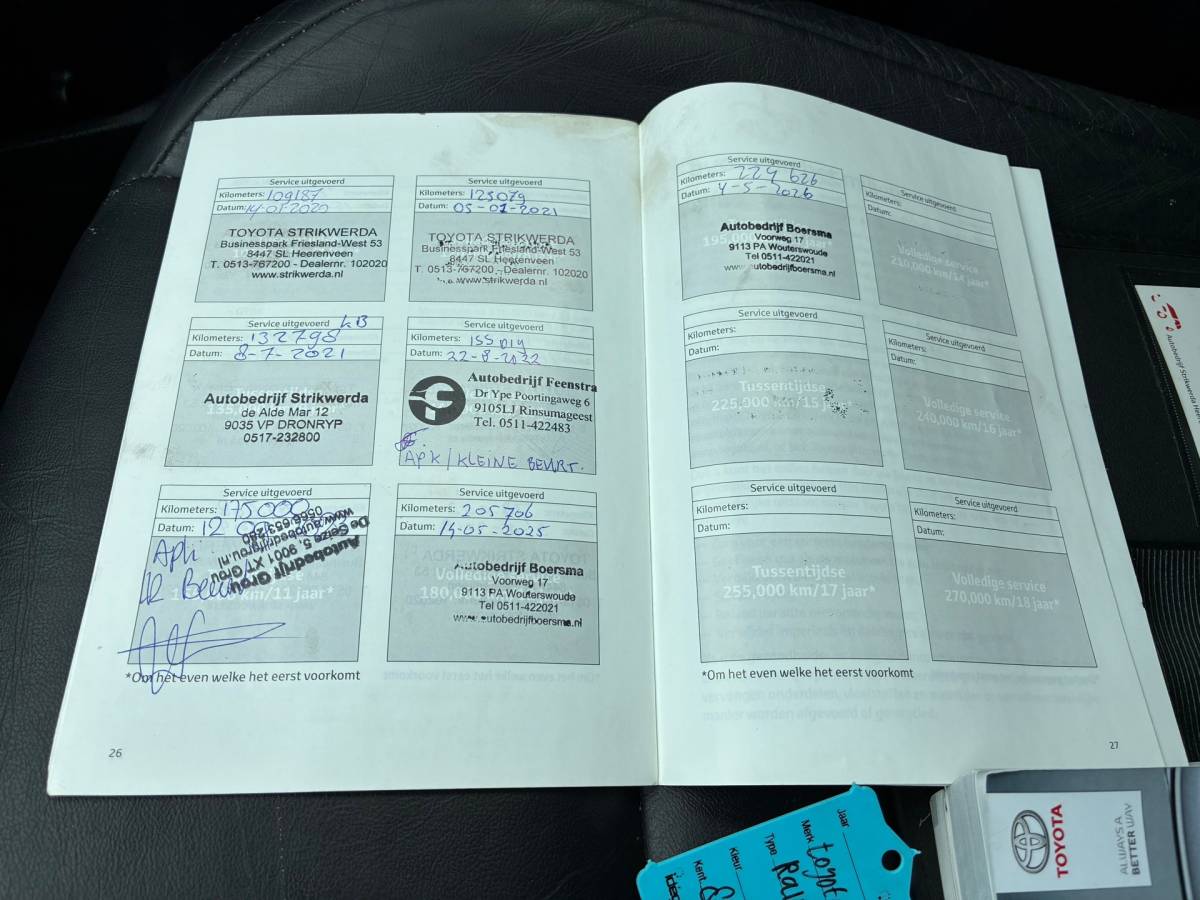 Service uitgevoerd
Kilometers: 109187
Datum: 14-07-2020
TOYOTA STRIKWERDA
Businesspark Friesland-West 53
8447 SL Heerenveen
T. 0513-767200 - Dealernr. 102020
www.strikwerda.nl
Service uitgevoerd
Kilometers: 125079
Datum: 05-01-2021
TOYOTA STRIKWERDA
Businesspark Friesland-West 53
8447 SL Heerenveen
T. 0513-767200 - Dealernr. 102020
www.strikwerda.nl
Service uitgevoerd KB
Kilometers: 132798
Datum: 8-7-2021
Tussentijdse
Autobedrijf Strikwerda
de Alde Mar 12
9035 VP DRONRYP
0517-232800
Service uitgevoerd
Kilometers:
Datum: 22-8-2022
Autobedrijf Feenstra
Dr Ype Poortingaweg 6
9105LJ Rinsumageest
Tel. 0511-422483
APK / KLEINE BEURT.
Service uitgevoerd
Kilometers: 175000
Datum: 12
Autobedrijf Grou
De Seize 5, 9001 XT Grou
www.autobedrijfgrou.nl
km/11 jaar*
Service uitgevoerd
Kilometers: 205706
Datum: 14-05-2025
Autobedrijf Boersma
Voorweg 17
9113 PA Wouterswoude
Tel 0511-422021
www.autobedrijfboersma.nl
180,000
*Om het even welke het eerst voorkomt
26
Service uitgevoerd
Kilometers: 224 626
Datum: 4-5-2026
Autobedrijf Boersma
Voorweg 17
9113 PA Wouterswoude
Tel 0511-422021
www.autobedrijfboersma.nl
195,000
Service uitgevoerd
Kilometers:
Datum:
Volledige service
210,000 km/14 jaar*
Service uitgevoerd
Kilometers:
Datum:
Tussentijdse
225,000 km/15 jaar*
Service uitgevoerd
Kilometers:
Datum:
Volledige service
240,000 km/16 jaar*
Service uitgevoerd
Kilometers:
Datum:
Tussentijdse
255,000 km/17 jaar*
Service uitgevoerd
Kilometers:
Datum:
Volledige service
270,000 km/18 jaar*
*Om het even welke het eerst voorkomt
27
Autobedrijf Strikwerda
Jaar
Merk Toyot
Type
Kleur
Kent
TOYOTA
ALWAYS A
BETTER WAY